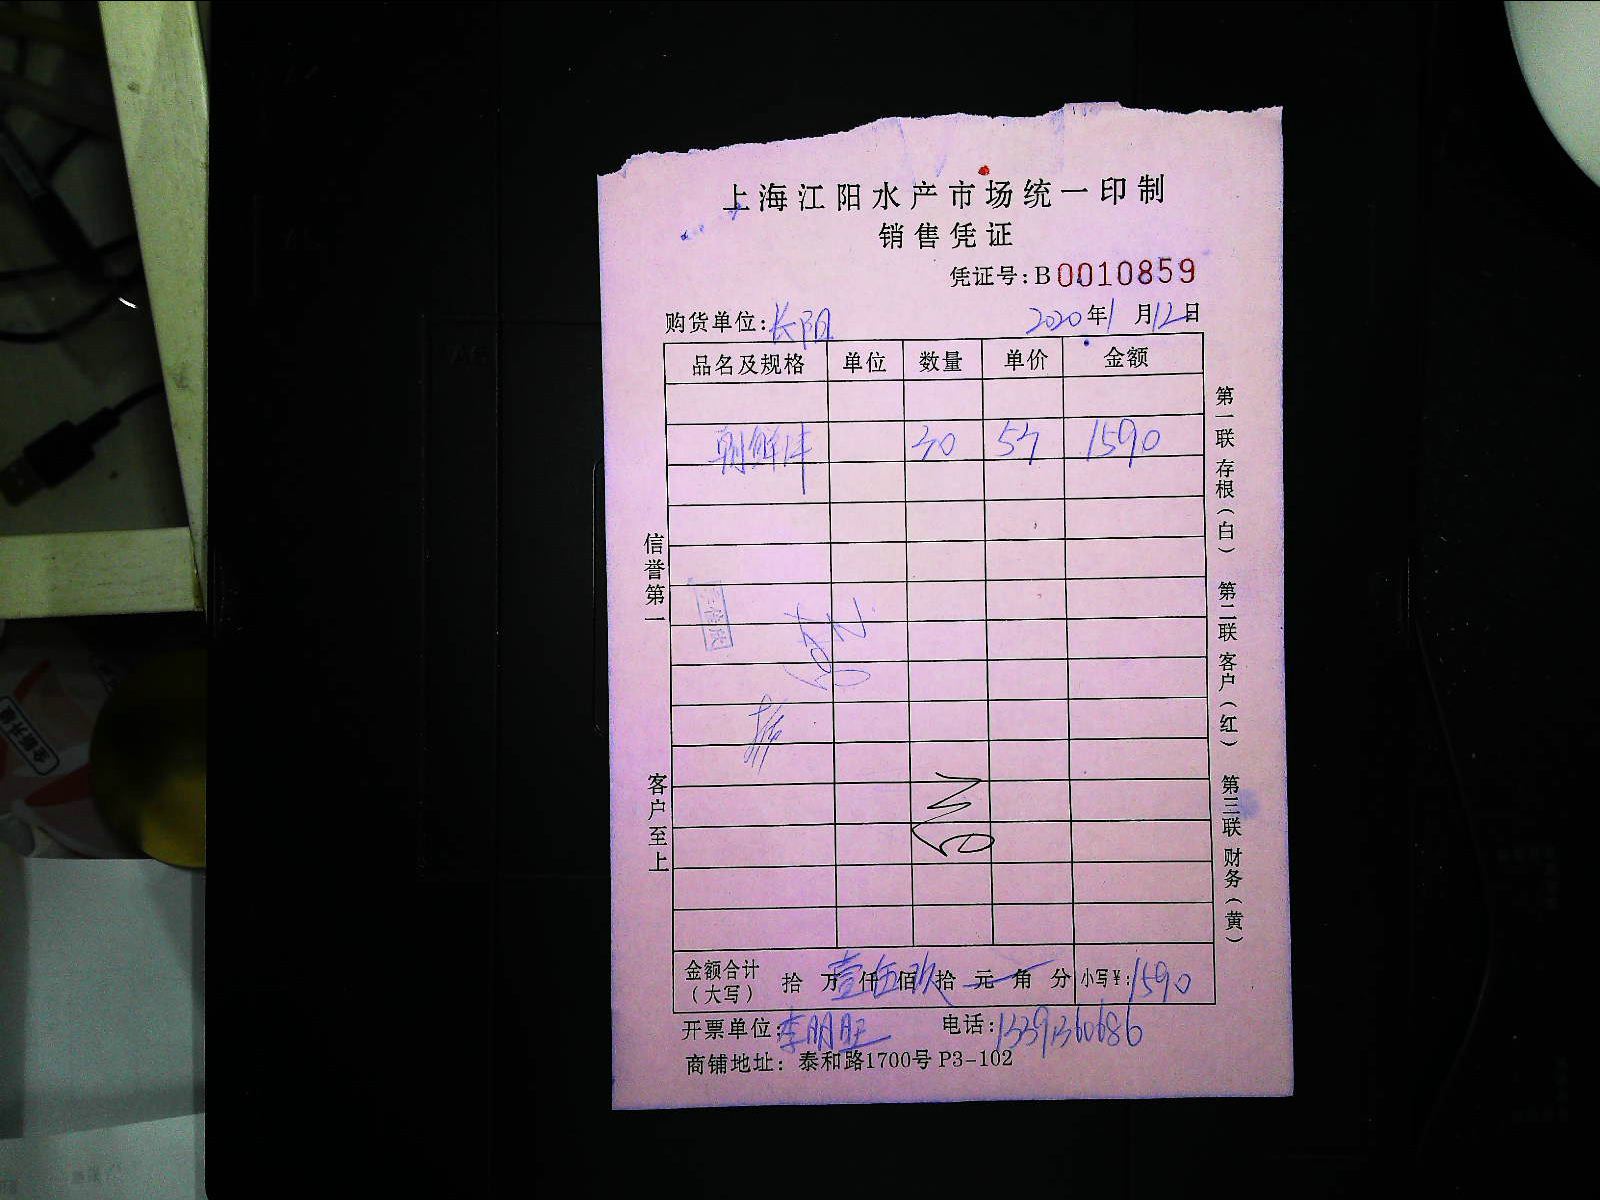 上海江阳水产市场统一印制
销售凭证
凭证号:B0010859
购货单位:长阳 2020年1月12日
品名及规格 单位 数量 单价 金额
朝鲜 30 1590
信誉第一
客户至上
第一联 存根(白) 第二联 客户(红) 第三联 财务(黄)
金额合计(大写) 拾万壹仟伍佰玖拾元角分 小写¥:1590
开票单位:李明旺 电话:13391360686
商铺地址: 泰和路1700号 P3-102